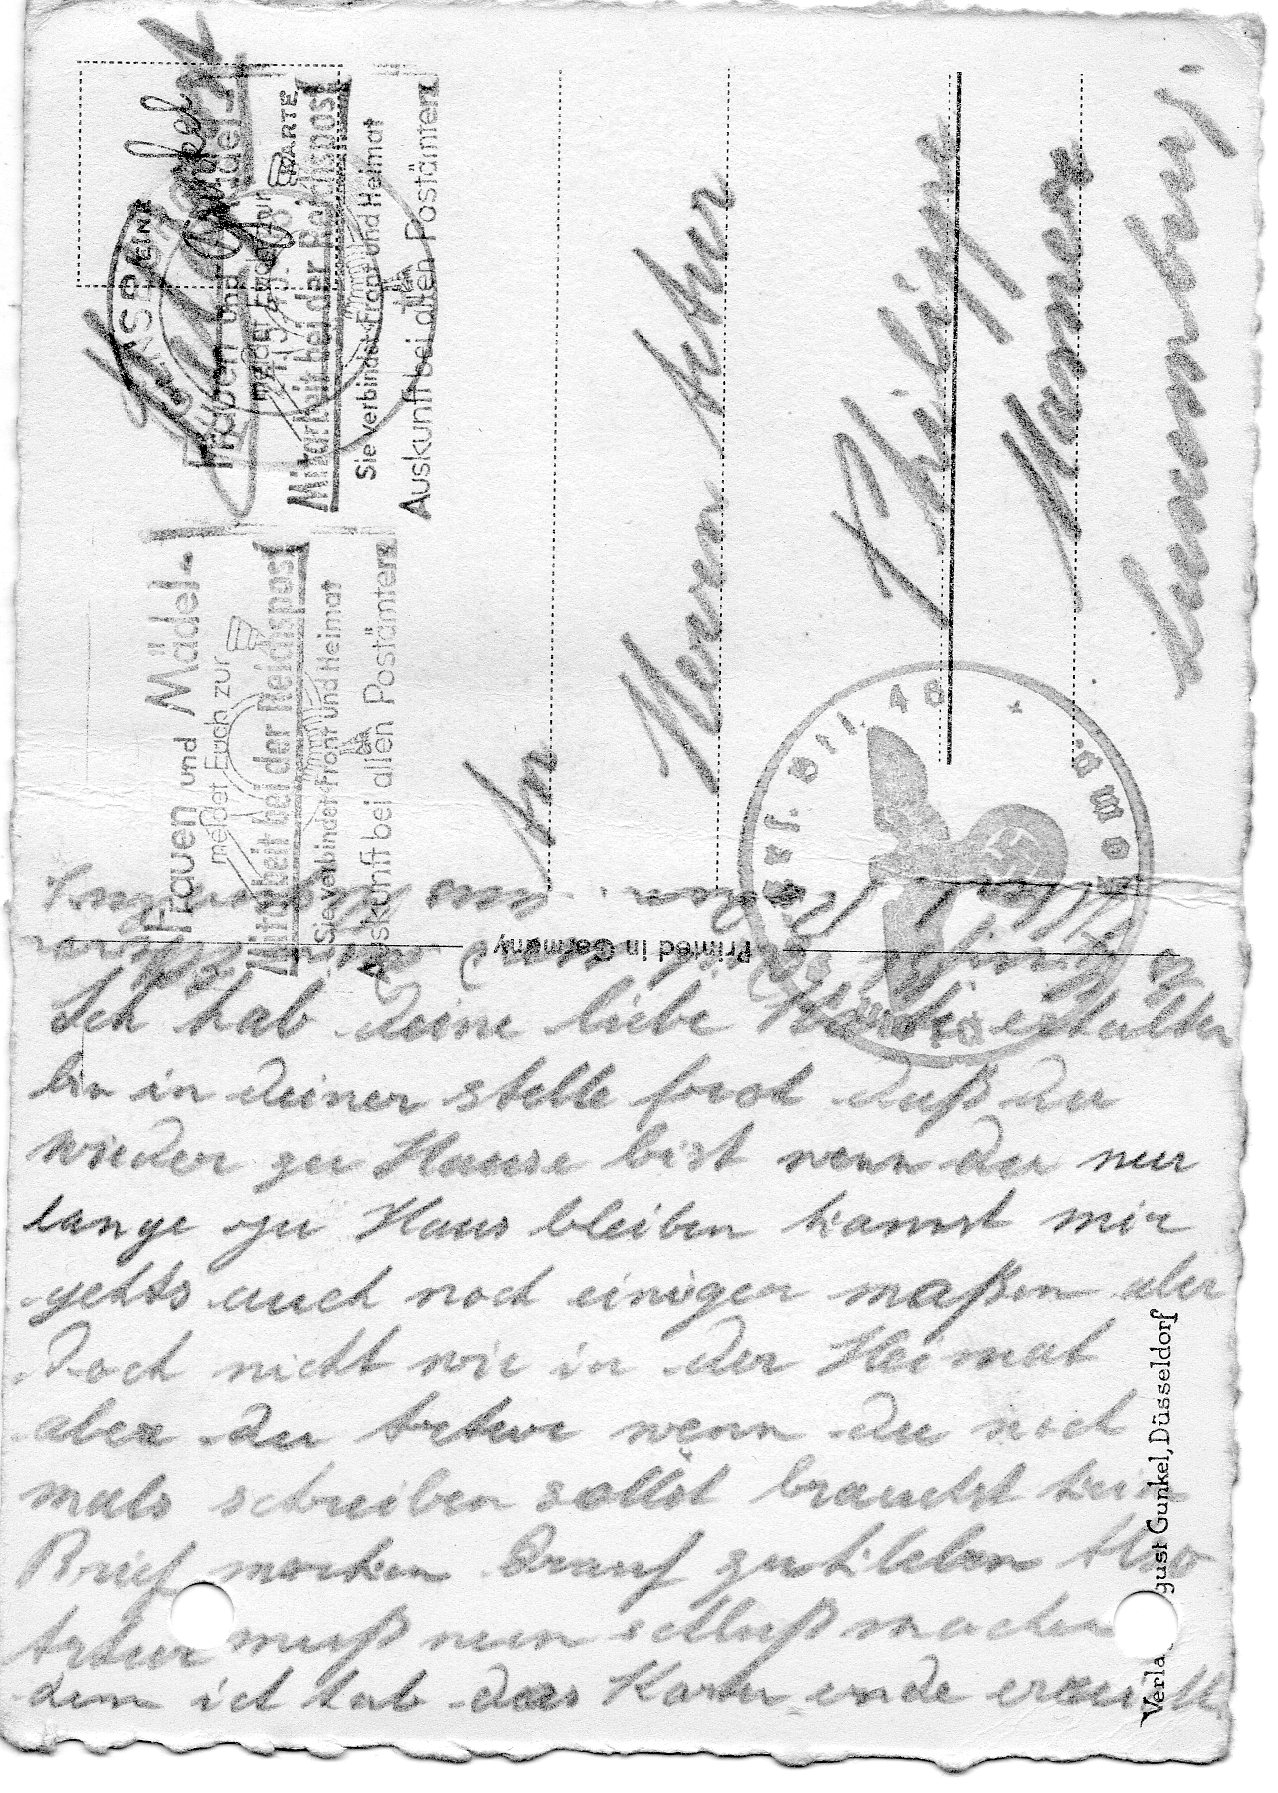 Frauen und Mädel
meldet Euch zur
Mitarbeit bei der Reichspost
Sie verbindet Front und Heimat
Auskunft bei allen Postämtern
Frauen und Mädel
meldet Euch zur
Mitarbeit bei der Reichspost
Sie verbindet Front und Heimat
Auskunft bei allen Postämtern
An
Herren Artur
Philippe
Mamer
Luxemburg
Printed in Germany
Ich hab deine liebe Karte erhalten
bin in deiner stelle froh daß du
wieder zu Hause bist wenn du nur
lange zu Haus bleiben kannst mir
gehts auch noch einiger maßen aber
doch nicht wie in der Heimat
aber du Artur wenn du noch
mals schreiben sollst brauchst kein
Brief marken drauf zu kleben Also
Artur muß nun schluß machen
den ich hab das Karten ende
Verla gust Gunkel, Düsseldorf